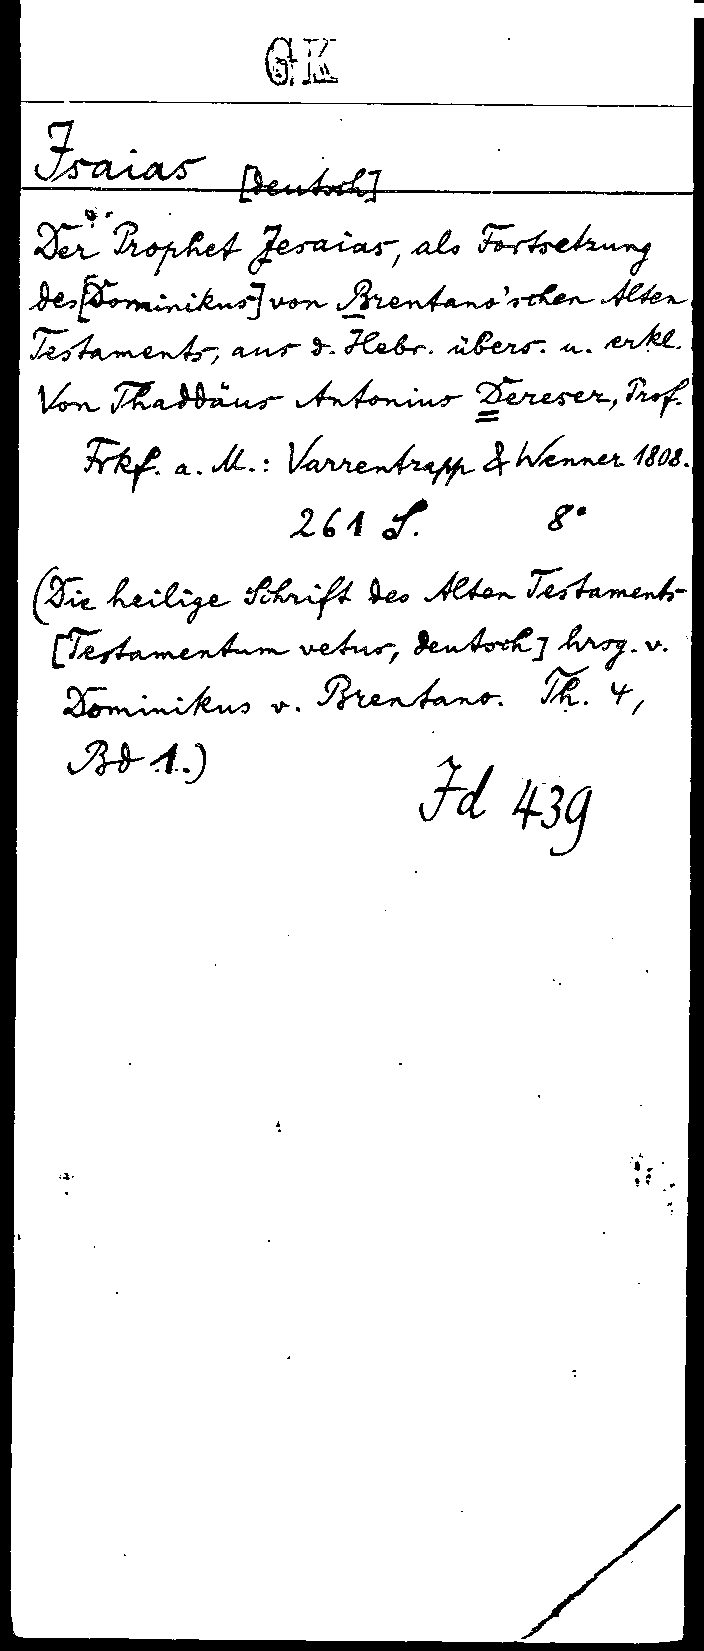 GK
Isaias [deutsch]
Der Prophet Jesaias, als Fortsetzung
des [Dominikus] von Brentano'schen Alten
Testaments, aus d. Hebr. übers. u. erkl.
Von Thaddäus Antonius Dereser, Prof.
Frkf. a. M.: Varrentrapp & Wenner 1808.
261 S. 8°
(Die heilige Schrift des Alten Testaments
[Testamentum vetus, deutsch] hrsg. v.
Dominikus v. Brentano. Th. 4,
Bd 1.)
Id 439